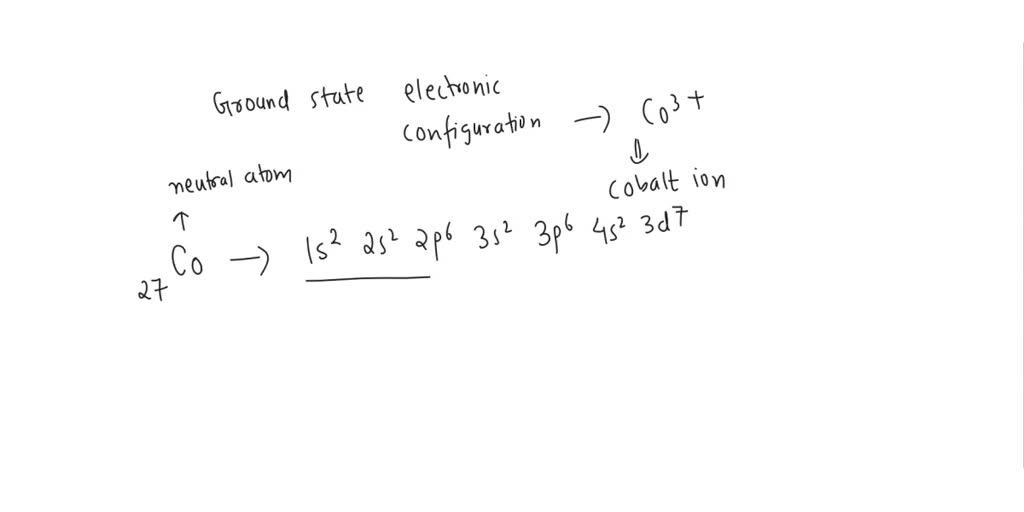 Ground state electronic
configuration → Co³⁺
⇓
neutral atom
cobalt ion
↑
₂₇Co → 1s² 2s² 2p⁶ 3s² 3p⁶ 4s² 3d⁷